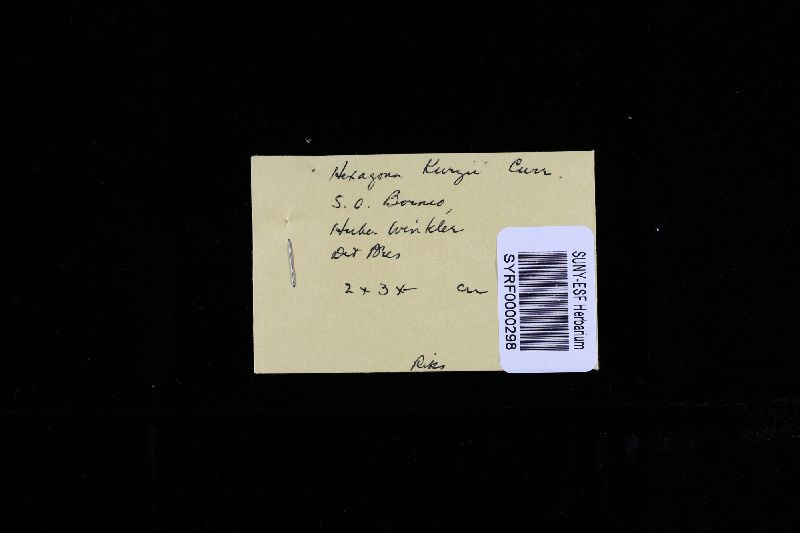 Hexagona Kurzii Curr.
S. O. Borneo,
Huber Winkler
Det Bres
2 x 3 x cm
Riks
SUNY-ESF Herbarium
SYRF0000298